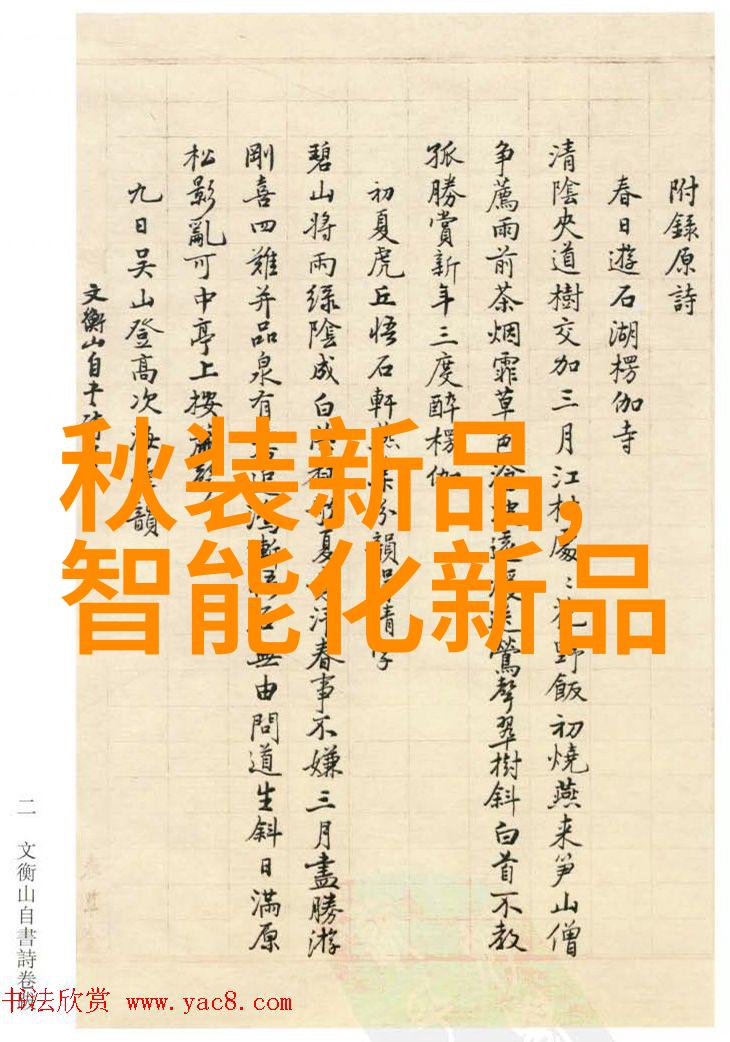 附錄原詩
春日遊石湖楞伽寺
清陰夾道樹交加三月江村處〻花野飯初燒燕来笋山僧
争薦雨前茶烟霏草色鶯聲翠樹斜白首不教
孤勝賞新年三度醉楞伽
初夏虎丘悟石軒燕集分韻得情字
碧山將雨綠陰成白夏春事不嫌三月盡勝游
剛喜四難并品泉有無由問道生斜日滿原
松影亂可中亭上按
九日吴山登高次海韻
文衡山自書
秋装新品,
智能化新品
二 文衡山自書詩卷跋
书法欣赏 www.yac8.com